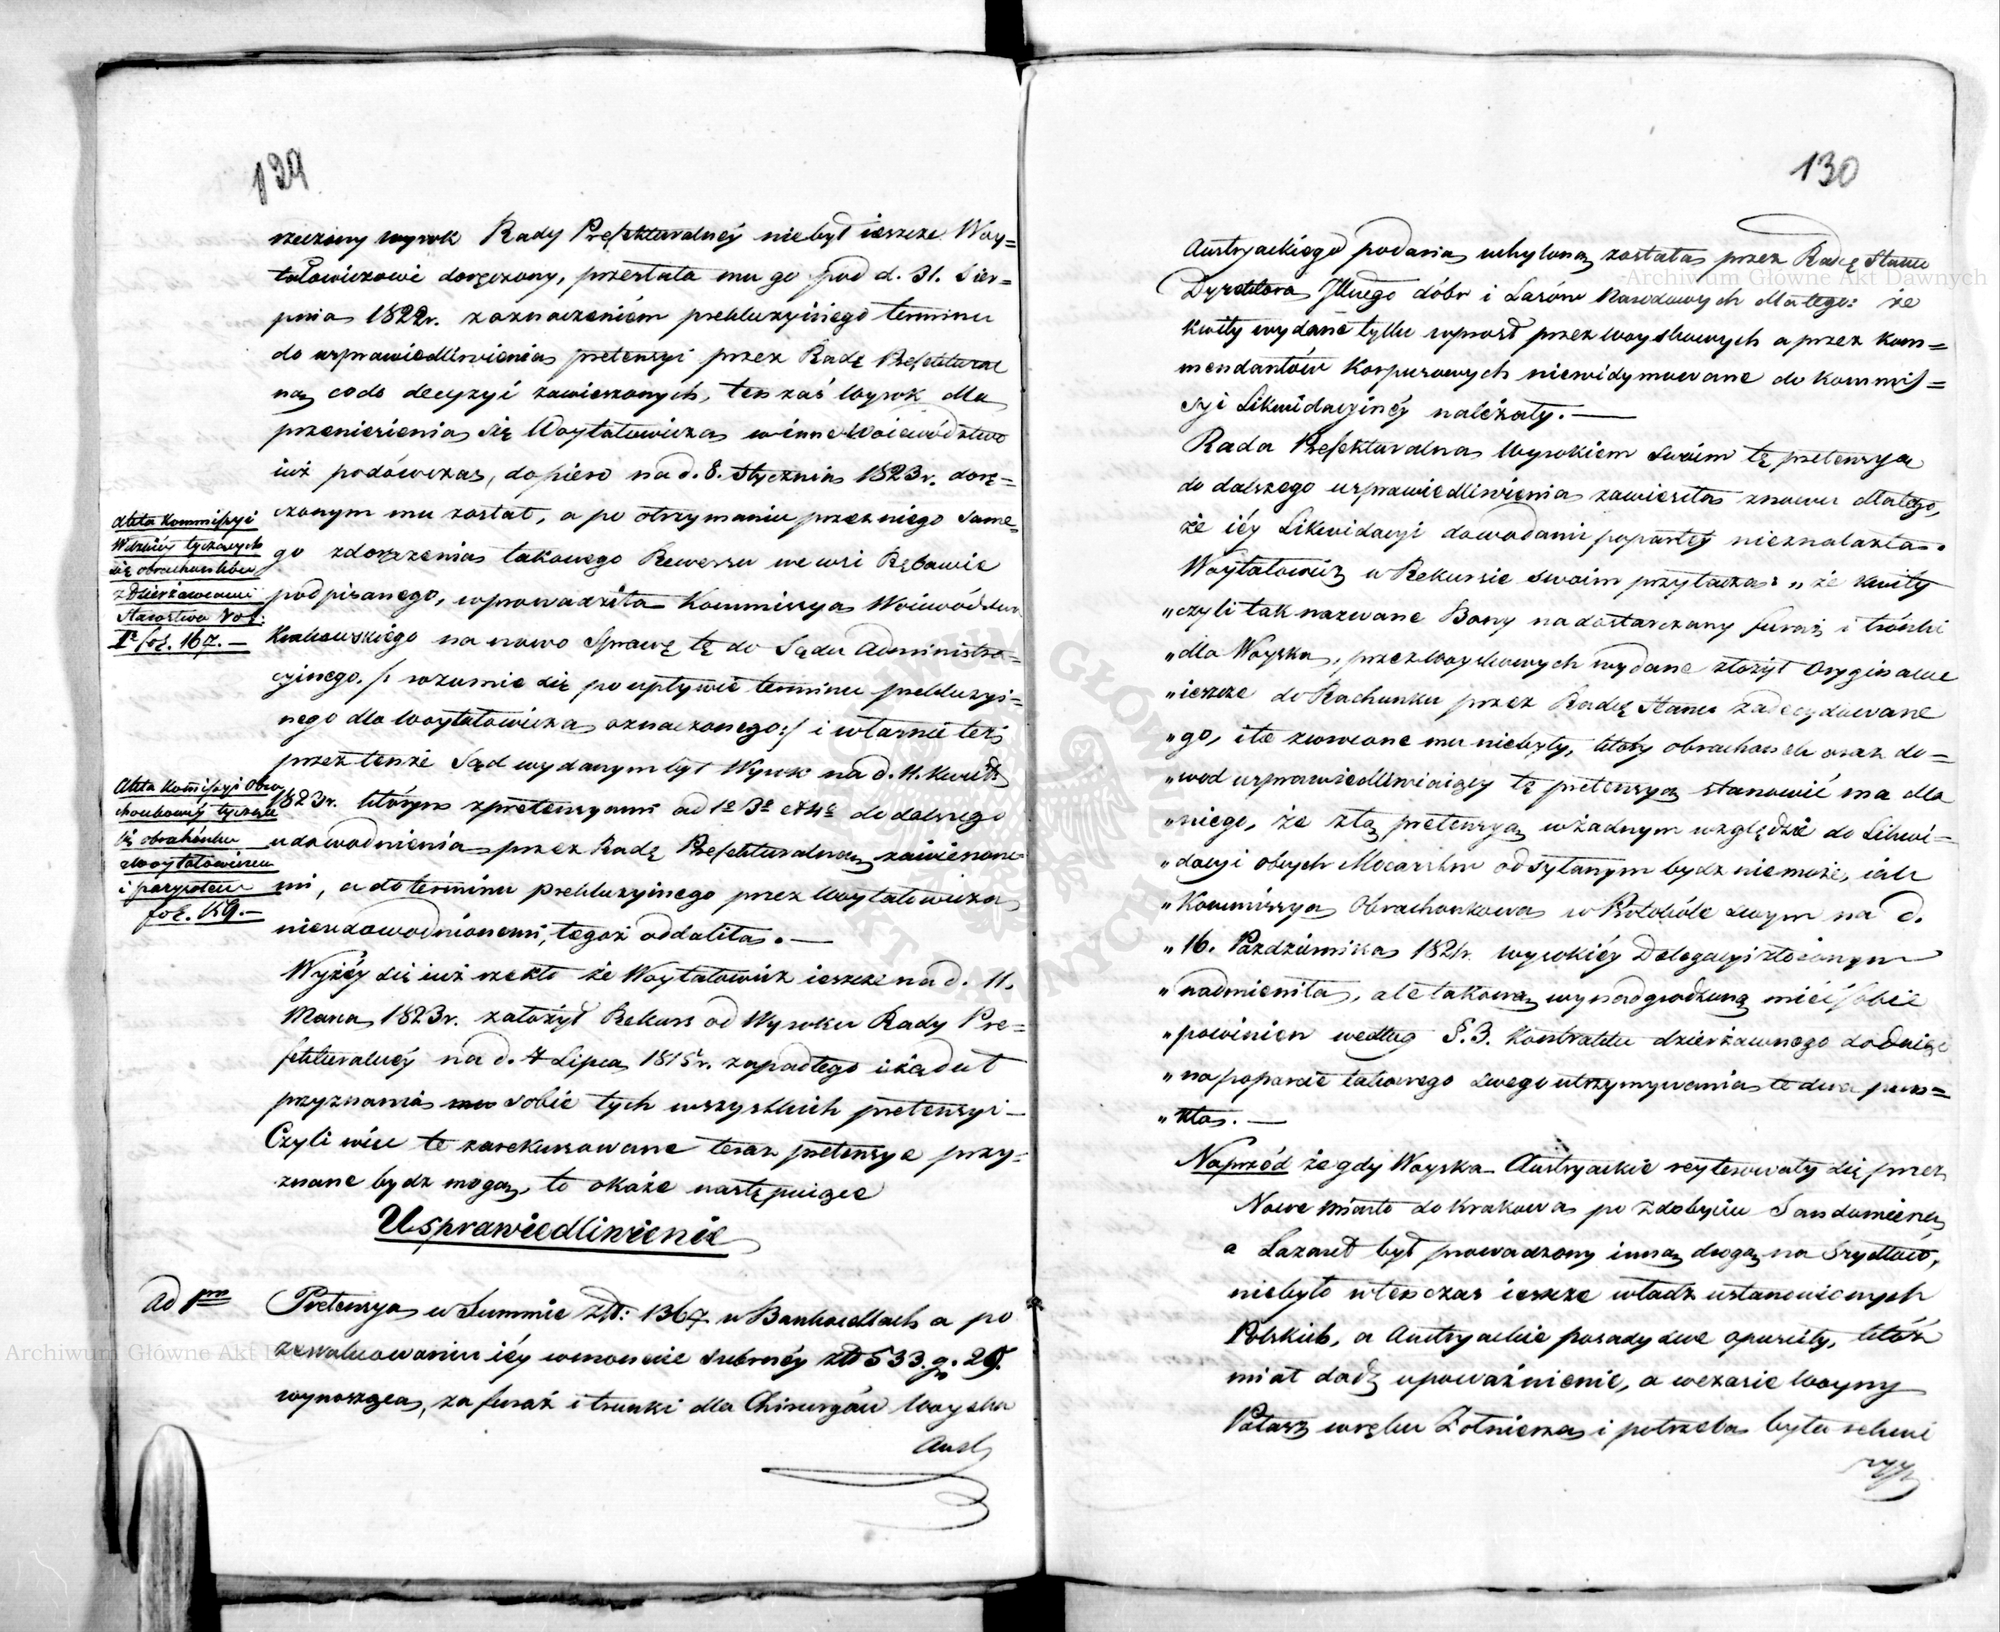 129
rzeczony wyrok Rady Prefekturalnéy niebył ieszcze Woy=
tałowiczowi doręczony, przesłała mu go pod d. 31. Sier=
pnia 1822r. z oznaczeniém prekluzyinego terminu
do usprawiedliwienia pretensyi przez Radę Prefektural
ną co do decyzyi zawieszonych, ten zaś Wyrok dla
przeniesienia się Woytałowicza w inne Woiewództwo
iuż podówczas, dopiero na d. 8. Stycznia 1823r. dorę=
czonym mu został, a po otrzymaniu przez niego same=
go zdoręczenia takowego Rewersu we wsi Rębowie
podpisanego, wprowadziła Kommissya Woiewództwa
Krakowskiego na nowo Sprawę tę do Sądu Administra=
cyinego /: rozumie się po upływie terminu prekluzyi=
nego dla Woytałowicza oznaczonego :/ i właśnie też
przez tenże Sąd wydanym był Wyrok na d. 11. Kwiet:
1823r. którym z pretensyami ad 1º 3º et 4º do dalszego
udowodnienia przez Radę Prefekturalną zawieszone
mi, a do terminu prekluzyinego przez Woytałowicza
nieudowodnionemi, tegoż oddaliła. —
Akta Kommissyi
Wdztwéy tyczących
się obrachunków
z Dzierżawcami
Starostwa Vol:
Iº fol. 167. —
Akta Kommissyi Obra
chunkowéy tyczące
się obrachunku
z Woytałowiczem
i
fol. 159. —
Wyżéy się iuż rzekło że Woytałowicz ieszcze na d. 11.
Marca 1823r. założył Rekurs od Wyroku Rady Pre=
fekturalnéy na d. 4 Lipca 1815r. zapadłego i żądał
przyznania sobie tych wszystkich pretensyi —
Czyli więc te zarekursowane teraz pretensye przy=
znane bydz mogą, to okaże następuiące
Usprawiedliwienie
Ad 1mm Pretensya w Summie złt: 1367 w Bankocetlach a po
zewaluowaniu iéy w monecie srebrnéy złt 533. gr. 29.
wynosząca, za furaż i trunki dla Chirurgów Woyska
Aust
130
Austryackiego podana uchyloną została przez Radcę Stanu
Dyrektora Jlnego dóbr i Lasów Narodowych dla tego: że
Kwity wydane tylko wprost przez Woyskowych a przez Kom=
mendantów Korpusowych niewidymowane do Kommis=
syi Likwidacyinéy należały. —
Rada Prefekturalna Wyrokiem swoim tę pretensyą
do dalszego usprawiedliwienia zawiesiła znowu dlatego,
że iéy Likwidacyi dowodami popartéy nieznalazła.
Woytałowicz w Rekursie swoim przytacza: „że kwity
„czyli tak nazwane Bony na dostarczany furaż i trónki
„dla Woyska, przez Woyskowych wydane złożył Oryginalne
„ieszcze do Rachunku przez Radcę Stanu zadecydowane
„go, i te zwrócone mu niebyły, który obrachunek oraz do=
„wod usprawiedliwiaiący tę pretensyą stanowić ma dla
„niego, że z tą pretensyą w żadnym względzie do Likwi=
„dacyi obcych Mocarstw odsyłanym bydz niemoże, iak
„Kommissya Obrachunkowa w Protokóle swym na d.
„16. Października 1821r. wysokiéy Delegacyi złożonym
„nadmieniła, ale takową wynadgrodzoną mieć sobie
„powinien według §. 3. Kontraktu dzierżawnego dodaiąc
„na poparcie takowego swego utrzymywania te dwa pun=
„kta. —
Naprzód że gdy Woyska Austryackie reyterowały się przez
Nowe miasto do Krakowa po zdobyciu Sandomierza
a Lazaret był prowadzony inną drogą na Szydłów,
niebyło wtenczas ieszcze władz ustanowionych
Polskich, a Austryackie posady swe opuściły, któż
miał dadź upoważnienie, a w czasie Woyny
Pałasz w ręku Żołnierza i potrzeba była rekwi
zyi